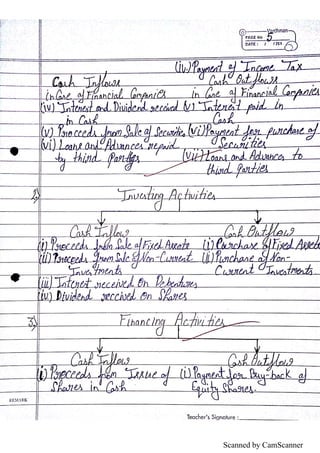 Vardhman
PAGE NO. 5
DATE : / /201
(iv) Payment of Income Tax
Cash Inflows Cash Outflows
in Case of Financial Companies in Case of Financial Companies
(iv) Interest and Dividend received (v) Interest paid in
in Cash Cash
(v) Proceeds from Sale of Securities (vi) Payment for purchase of
(vi) Loans and Advances repaid Securities
by third Parties (vii) Loans and Advances to
third Parties
2) Investing Activities
Cash Inflow Cash Outflow
(i) Proceeds from Sale of Fixed Assets (i) Purchase of Fixed Assets
(ii) Proceeds from Sale of Non-Current (ii) Purchase of Non-
Investments Current Investments
(iii) Interest received on Debentures
(iv) Dividend received on Shares
3) Financing Activities
Cash Inflow Cash Outflow
(i) Proceeds from Issue of (i) Payment for Buy-back of
Shares in Cash Equity Shares.
Teacher's Signature :
Scanned by CamScanner